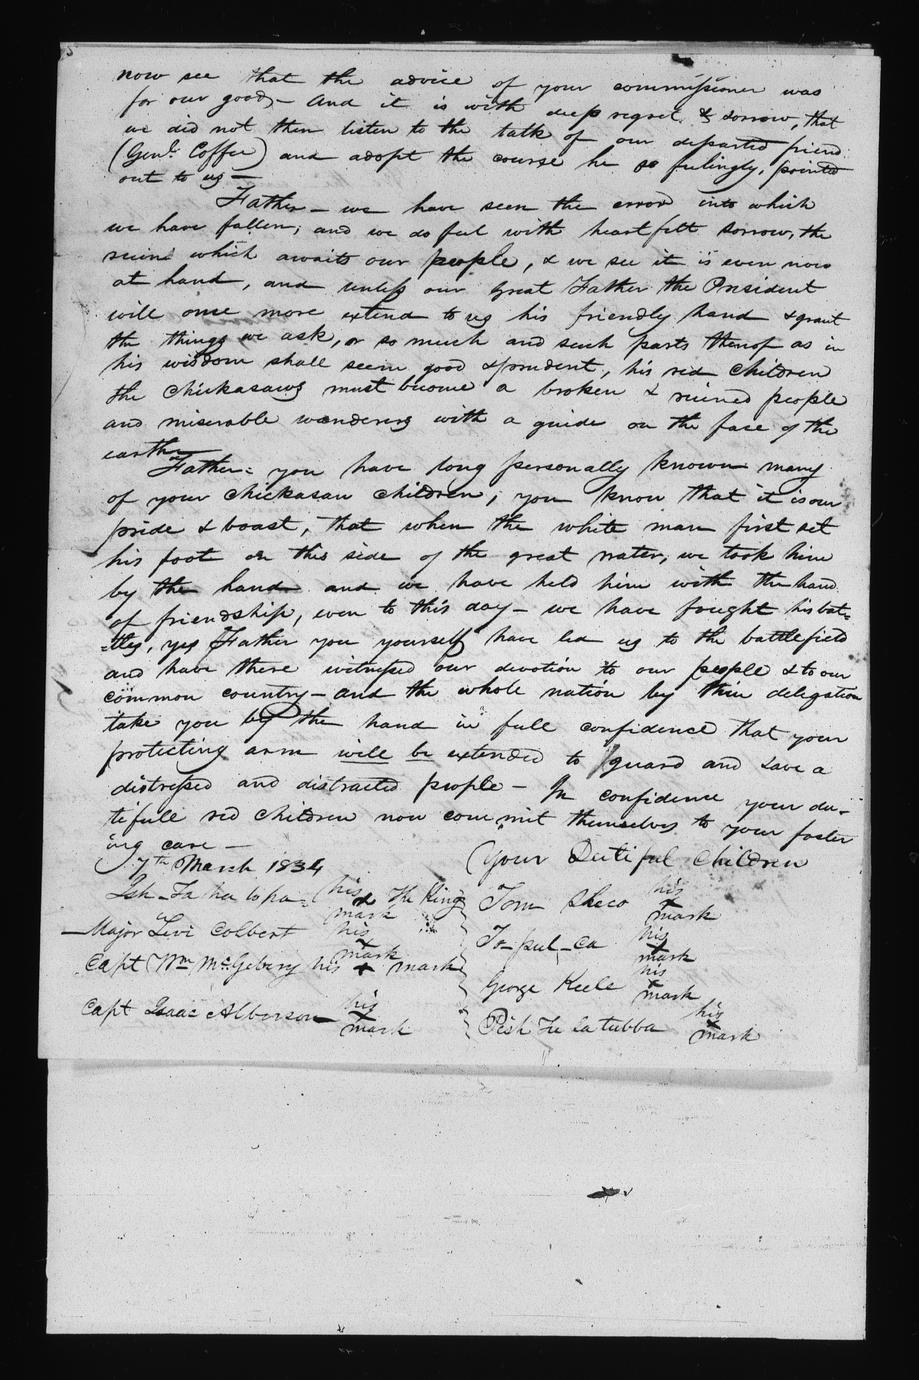 now see that the advice of your commissioner was
for our good,- And it is with deep regret & sorrow, that
we did not then listen to the talk of our departed friend
(Genl. Coffee) and adopt the course he so feelingly, pointed
out to us—
Father - we have seen the error into which
we have fallen; and we do feel with heartfelt sorrow, the
ruin which awaits our people, & we see it is even now
at hand, and unless our great Father the President
will once more extend to us his friendly hand & grant
the things we ask, or so much and such parts thereof as in
his wisdom shall seem good & prudent, his red children
the Chickasaws must become a broken & ruined people
and miserable wanderers with a guide on the face of the
earth—
Father- you have long personally known many
of your chickasaw children; you know that it is our
pride & boast, that when the white man first set
his foot on this side of the great water, we took him
by the hand and we have held him with the hand
of friendship, even to this day - we have fought his bat=
=tles, yes Father you yourself have led us to the battlefield
and have there witnessed our devotion to our people & to our
common country - and the whole nation by their delegation
take you by the hand in full confidence that your
protecting arm will be extended to guard and save a
distressed and distracted people - In confidence your du-
tifull red children now commit themselves to your foster
ing care —
7th March 1834 Your Dutiful Children
Ish-Ta ha to pa- his x mark The King
Tom Sheco his x mark
Major Levi Colbert his x mark
To-pul-ca his x mark
Capt Wm McGilvery his x mark
George Keele his x mark
Capt Isaac Alberson his x mark
Pish Te la tubba his x mark